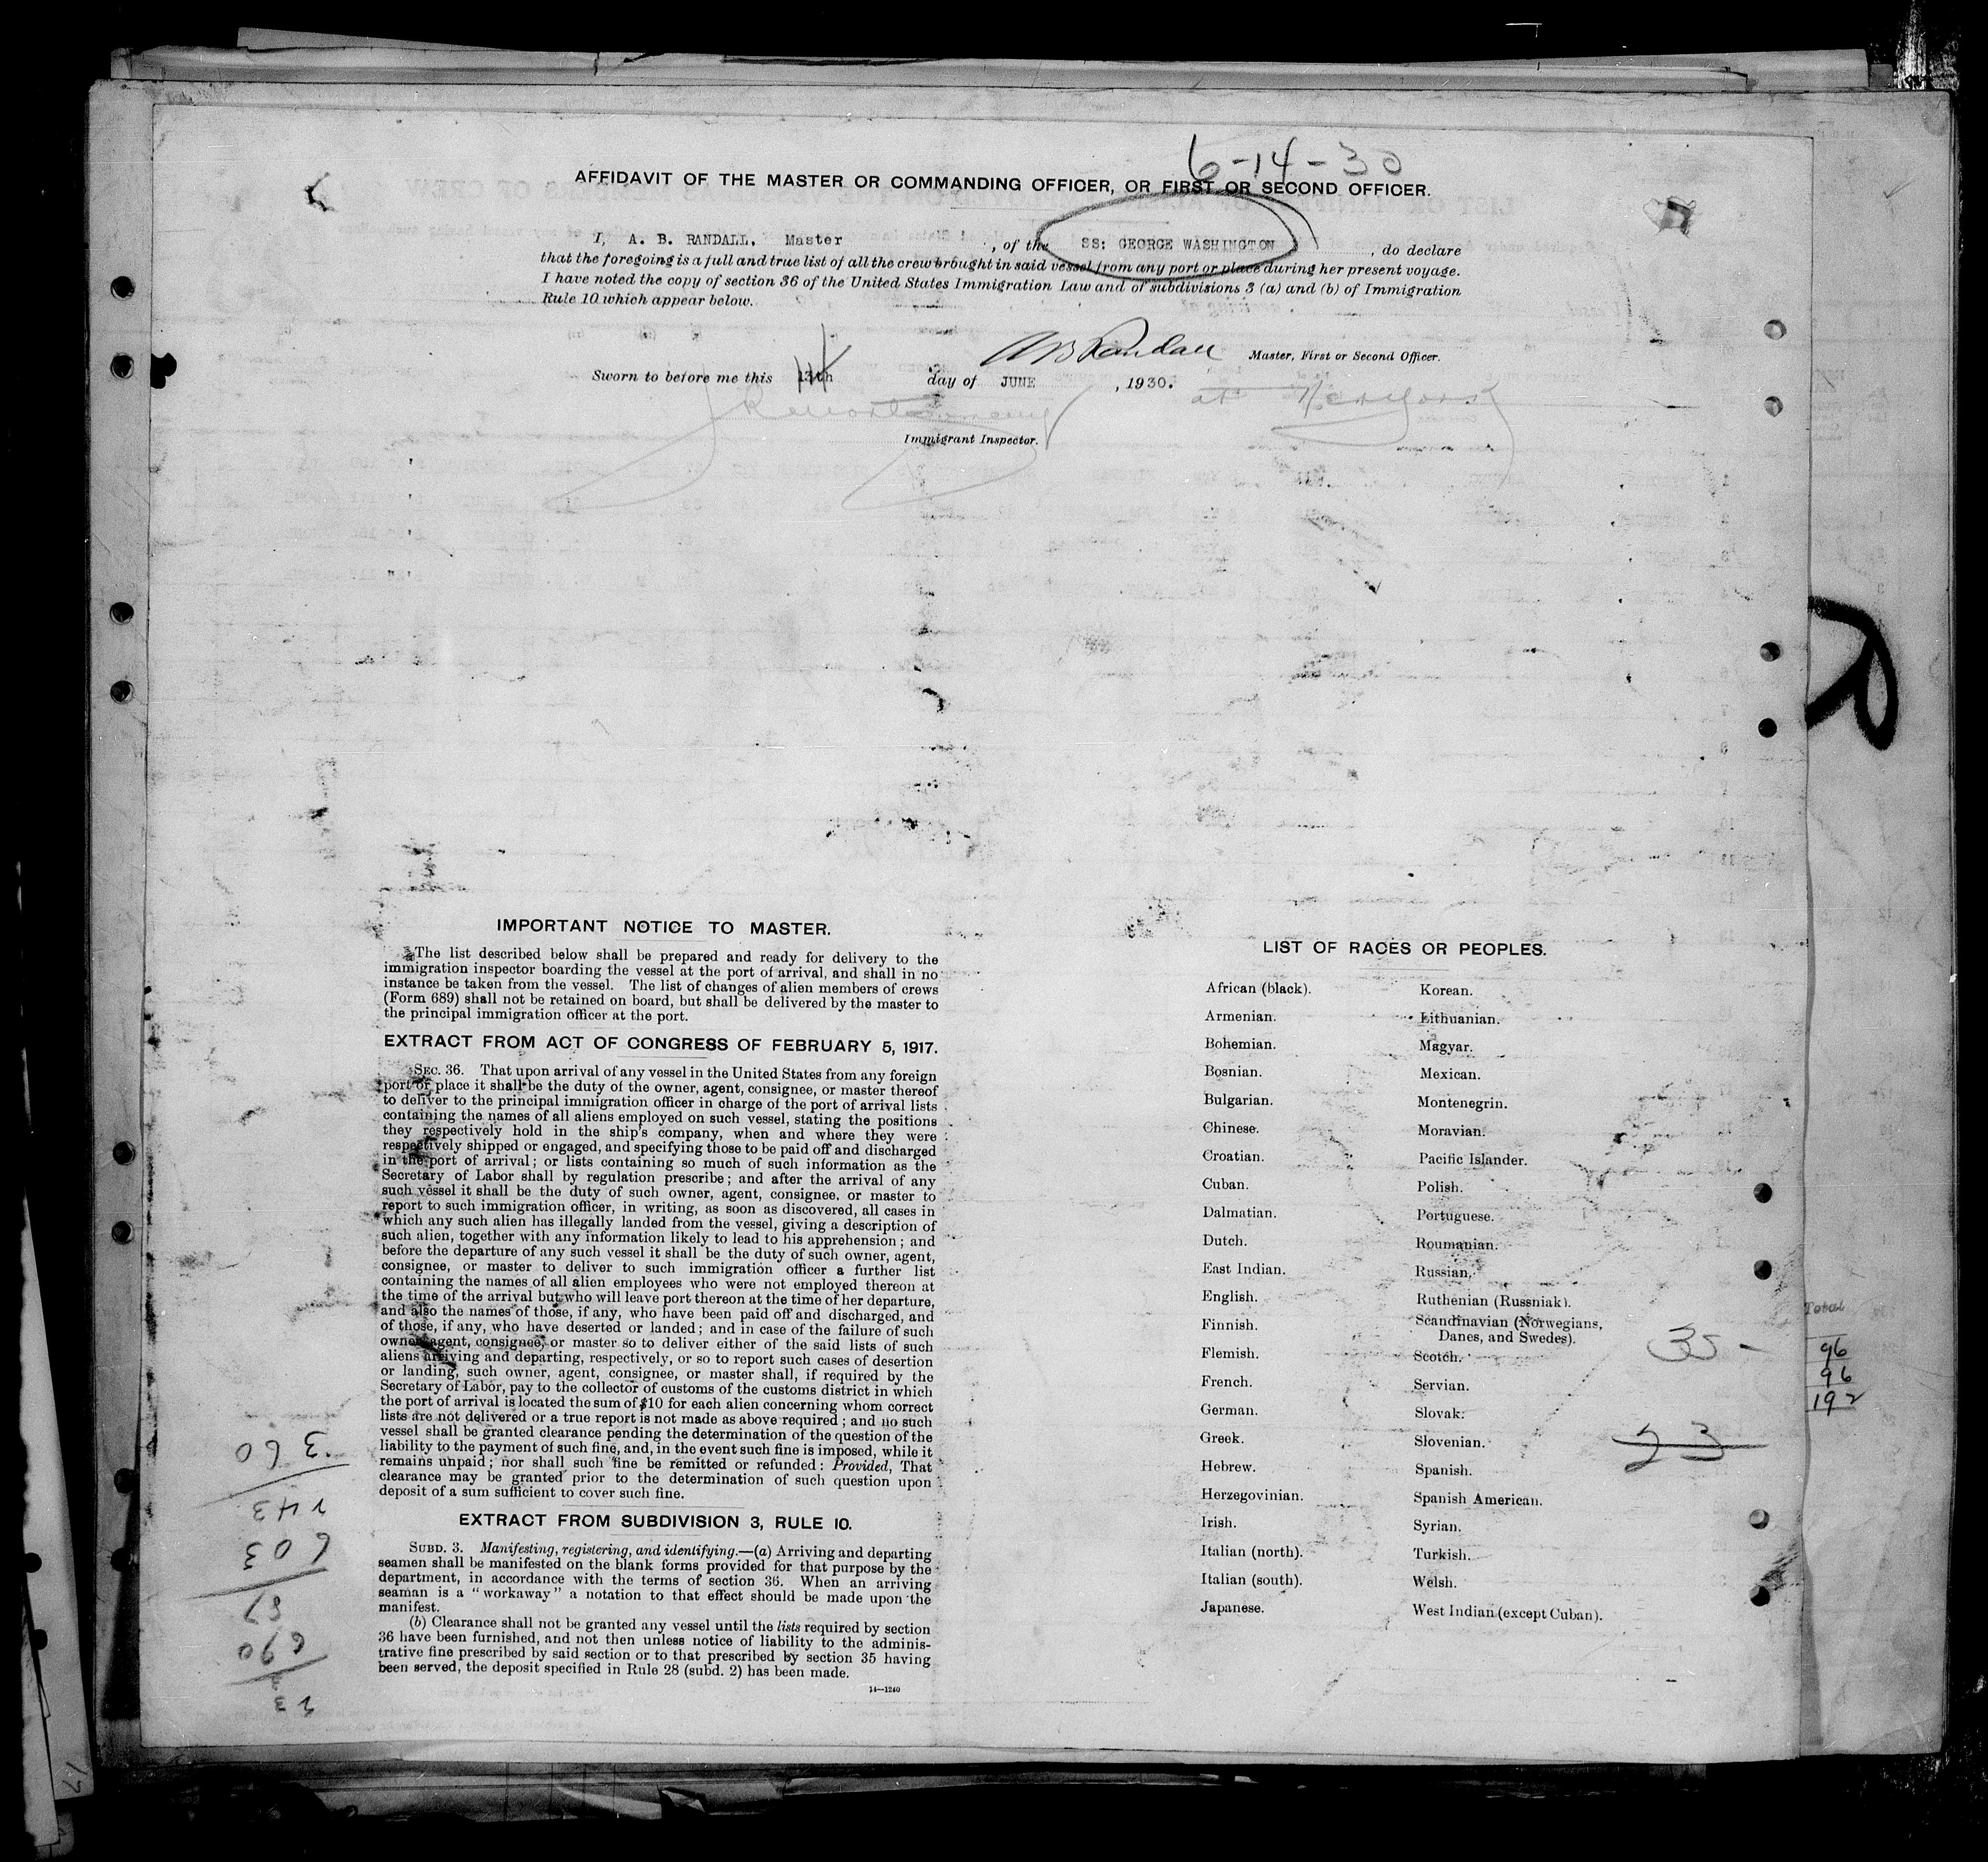 6-14-30
AFFIDAVIT OF THE MASTER OR COMMANDING OFFICER, OR FIRST OR SECOND OFFICER.
I, A. B. RANDALL, Master , of the SS: GEORGE WASHINGTON , do declare
that the foregoing is a full and true list of all the crew brought in said vessel from any port or place during her present voyage.
I have noted the copy of section 36 of the United States Immigration Law and of subdivisions 3 (a) and (b) of Immigration
Rule 10 which appear below.
A B Randall Master, First or Second Officer.
Sworn to before me this 13th 14 day of JUNE , 1930. at New York
Immigrant Inspector.
IMPORTANT NOTICE TO MASTER.
The list described below shall be prepared and ready for delivery to the
immigration inspector boarding the vessel at the port of arrival, and shall in no
instance be taken from the vessel. The list of changes of alien members of crews
(Form 689) shall not be retained on board, but shall be delivered by the master to
the principal immigration officer at the port.
EXTRACT FROM ACT OF CONGRESS OF FEBRUARY 5, 1917.
SEC. 36. That upon arrival of any vessel in the United States from any foreign
port or place it shall be the duty of the owner, agent, consignee, or master thereof
to deliver to the principal immigration officer in charge of the port of arrival lists
containing the names of all aliens employed on such vessel, stating the positions
they respectively hold in the ship's company, when and where they were
respectively shipped or engaged, and specifying those to be paid off and discharged
in the port of arrival; or lists containing so much of such information as the
Secretary of Labor shall by regulation prescribe; and after the arrival of any
such vessel it shall be the duty of such owner, agent, consignee, or master to
report to such immigration officer, in writing, as soon as discovered, all cases in
which any such alien has illegally landed from the vessel, giving a description of
such alien, together with any information likely to lead to his apprehension; and
before the departure of any such vessel it shall be the duty of such owner, agent,
consignee, or master to deliver to such immigration officer a further list
containing the names of all alien employees who were not employed thereon at
the time of the arrival but who will leave port thereon at the time of her departure,
and also the names of those, if any, who have been paid off and discharged, and
of those, if any, who have deserted or landed; and in case of the failure of such
owner, agent, consignee, or master so to deliver either of the said lists of such
aliens arriving and departing, respectively, or so to report such cases of desertion
or landing, such owner, agent, consignee, or master shall, if required by the
Secretary of Labor, pay to the collector of customs of the customs district in which
the port of arrival is located the sum of $10 for each alien concerning whom correct
lists are not delivered or a true report is not made as above required; and no such
vessel shall be granted clearance pending the determination of the question of the
liability to the payment of such fine, and, in the event such fine is imposed, while it
remains unpaid; nor shall such fine be remitted or refunded: Provided, That
clearance may be granted prior to the determination of such question upon
deposit of a sum sufficient to cover such fine.
EXTRACT FROM SUBDIVISION 3, RULE 10.
SUBD. 3. Manifesting, registering, and identifying.—(a) Arriving and departing
seamen shall be manifested on the blank forms provided for that purpose by the
department, in accordance with the terms of section 36. When an arriving
seaman is a "workaway" a notation to that effect should be made upon the
manifest.
(b) Clearance shall not be granted any vessel until the lists required by section
36 have been furnished, and not then unless notice of liability to the adminis-
trative fine prescribed by said section or to that prescribed by section 35 having
been served, the deposit specified in Rule 28 (subd. 2) has been made.
14—1240
LIST OF RACES OR PEOPLES.
African (black).
Armenian.
Bohemian.
Bosnian.
Bulgarian.
Chinese.
Croatian.
Cuban.
Dalmatian.
Dutch.
East Indian.
English.
Finnish.
Flemish.
French.
German.
Greek.
Hebrew.
Herzegovinian.
Irish.
Italian (north).
Italian (south).
Japanese.
Korean.
Lithuanian.
Magyar.
Mexican.
Montenegrin.
Moravian.
Pacific Islander.
Polish.
Portuguese.
Roumanian.
Russian.
Ruthenian (Russniak).
Scandinavian (Norwegians,
Danes, and Swedes).
Scotch.
Servian.
Slovak.
Slovenian.
Spanish.
Spanish American.
Syrian.
Turkish.
Welsh.
West Indian (except Cuban).
35 -
23
Total
96
96
192
23
690
87
603
243
360
17